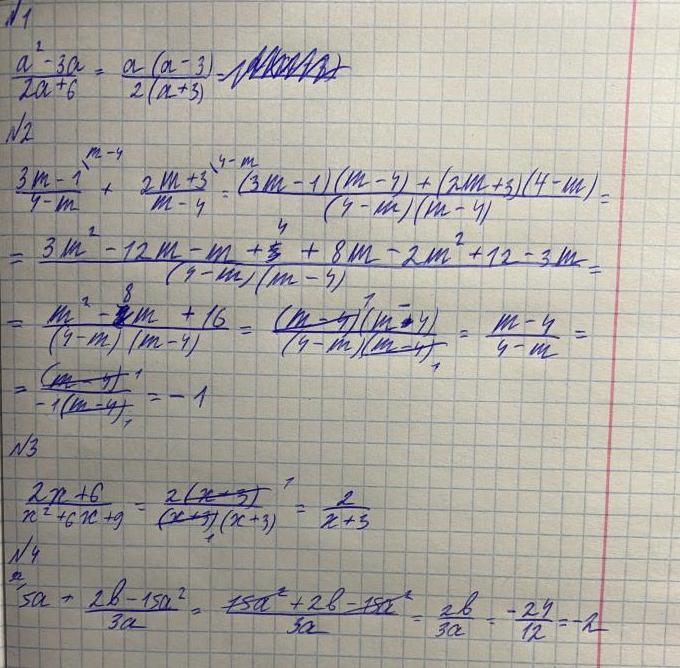 №1
a² - 3a / 2a + 6 = a (a - 3) / 2 (a + 3) =
№2
3m - 1 \ m - 4 / 4 - m + 2m + 3 \ 4 - m / m - 4 = (3m - 1)(m - 4) + (2m + 3)(4 - m) / (4 - m)(m - 4) =
= 3m² - 12m - m + 4 + 8m - 2m² + 12 - 3m / (4 - m)(m - 4) =
= m² - 8m + 16 / (4 - m)(m - 4) = (m - 4)¹(m - 4) / (4 - m)(m - 4)₁ = m - 4 / 4 - m =
= (m - 4)¹ / -1(m - 4)₁ = - 1
№3
2x + 6 / x² + 6x + 9 = 2(x + 3)¹ / (x + 3)₁(x + 3) = 2 / x + 3
№4
5a + 2b - 15a² / 3a = 15a² + 2b - 15a² / 3a = 2b / 3a = -24 / 12 = -2